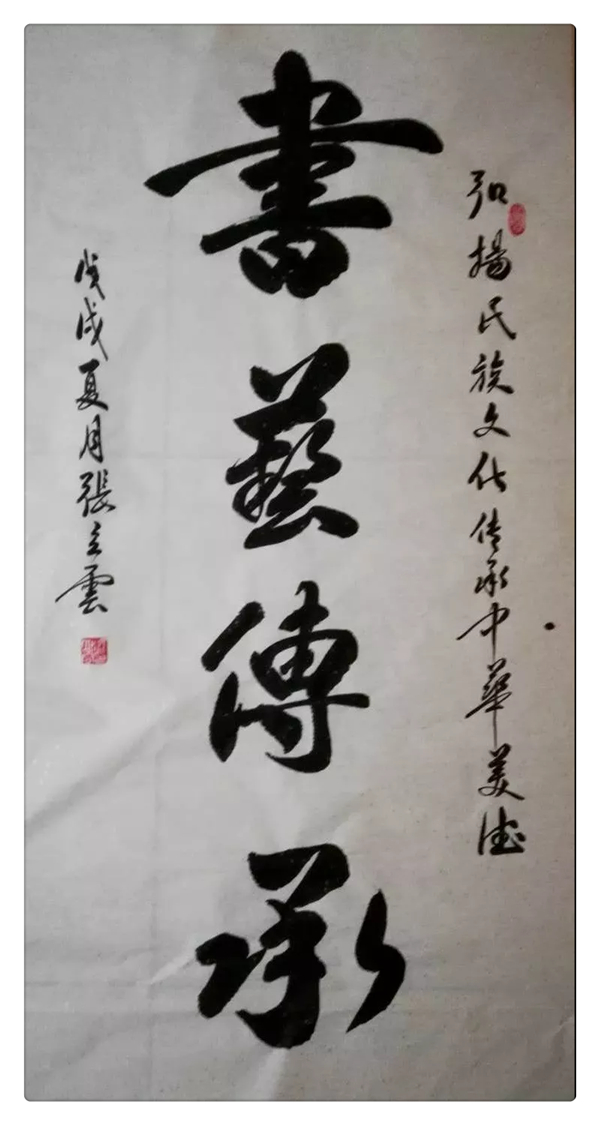 弘揚民族文化传承中華美德
書藝傳承
戊戌夏月張立雲